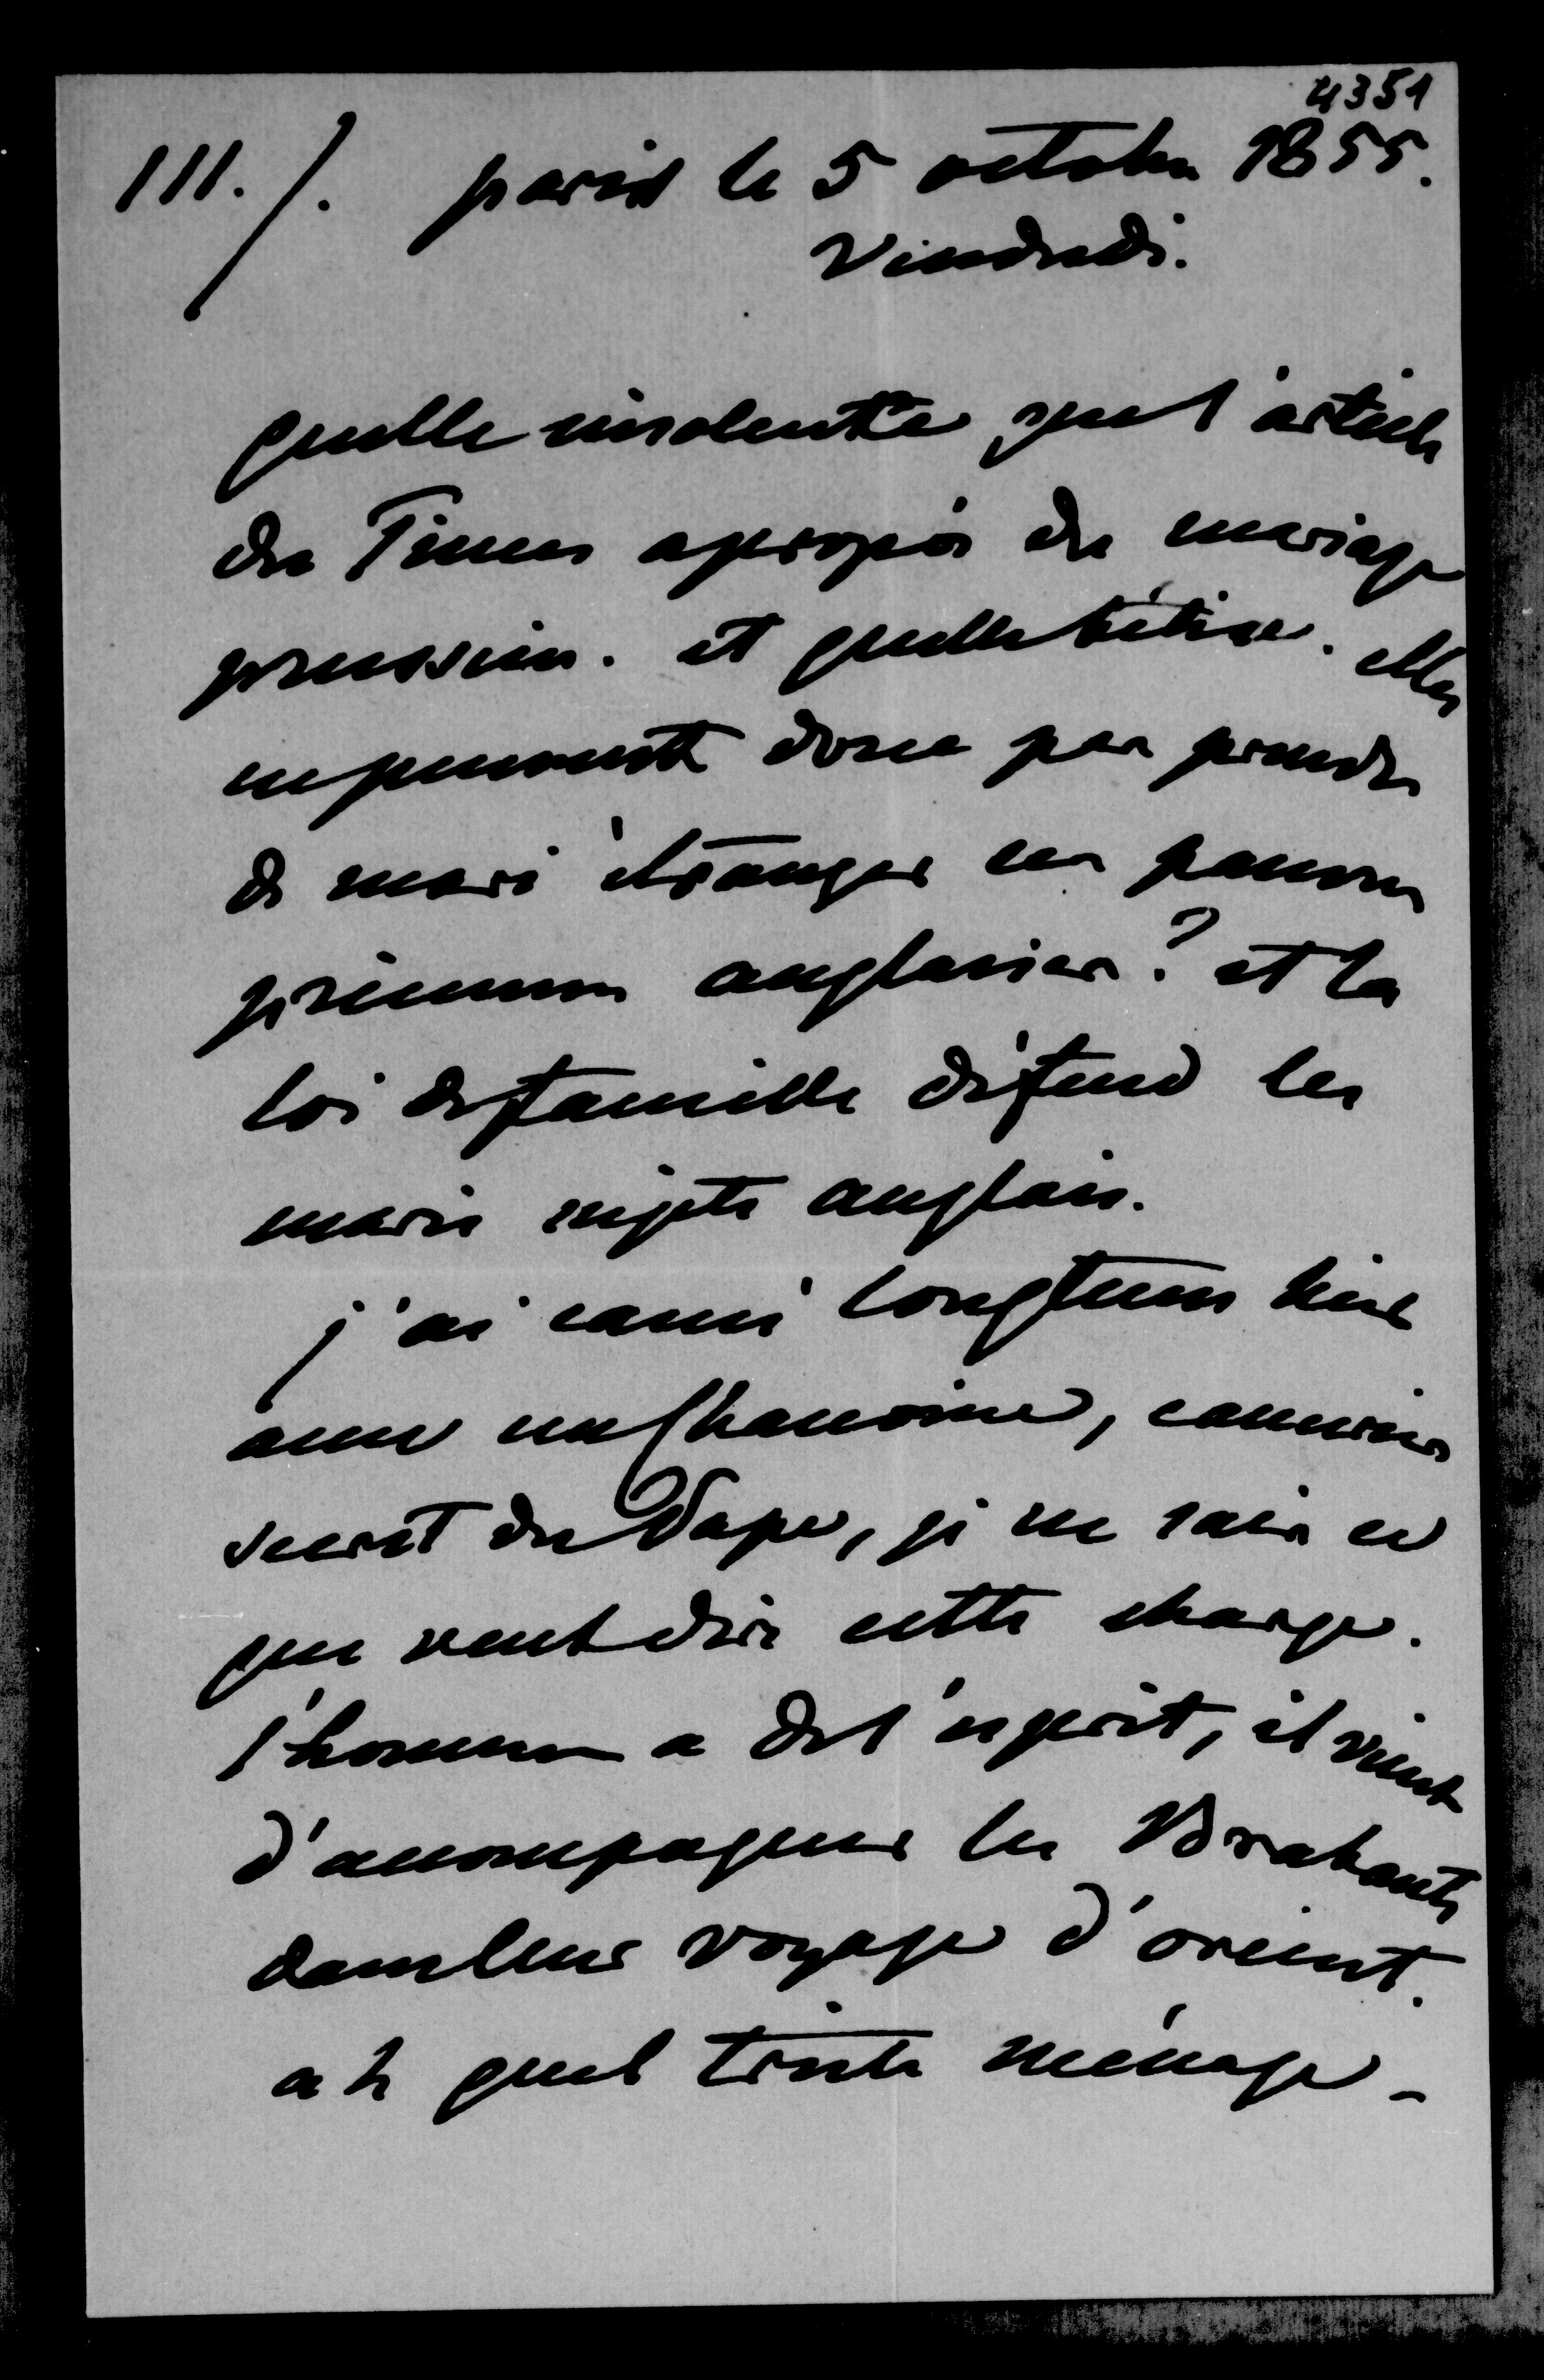 4351
111./. paris le 5 octobre 1855.
Vendredi.
quelle insolente que l'article
du Times apropos du mariage
prussien. et quelle bêtise. Elles
ne peuvent donc pas prendre
de mari étranger ces pauvres
princesses anglaises? et la
loi de famille défend les
maris sujets anglais.
j'ai causé longtems hier
avec un Chanoine, camérier
secret du Pape, je ne sais ce
que veut dire cette charge.
l'homme a de l'esprit, il vient
d'accompagner les Brabants
dans leur voyage d'orient.
ah quel triste ménage -